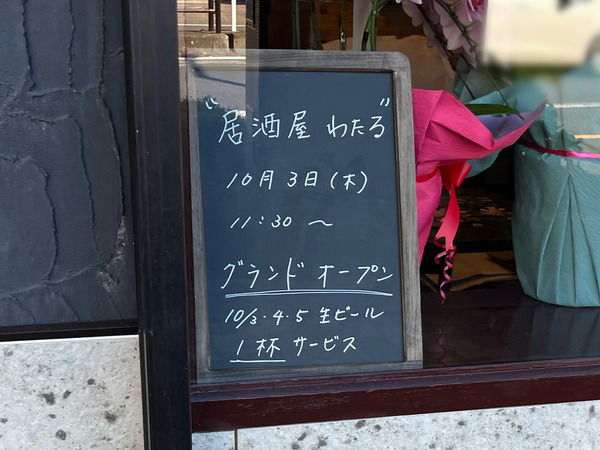 "居酒屋 わたる"
10月3日(木)
11:30〜
グランド オープン
10/3・4・5 生ビール
1杯 サービス